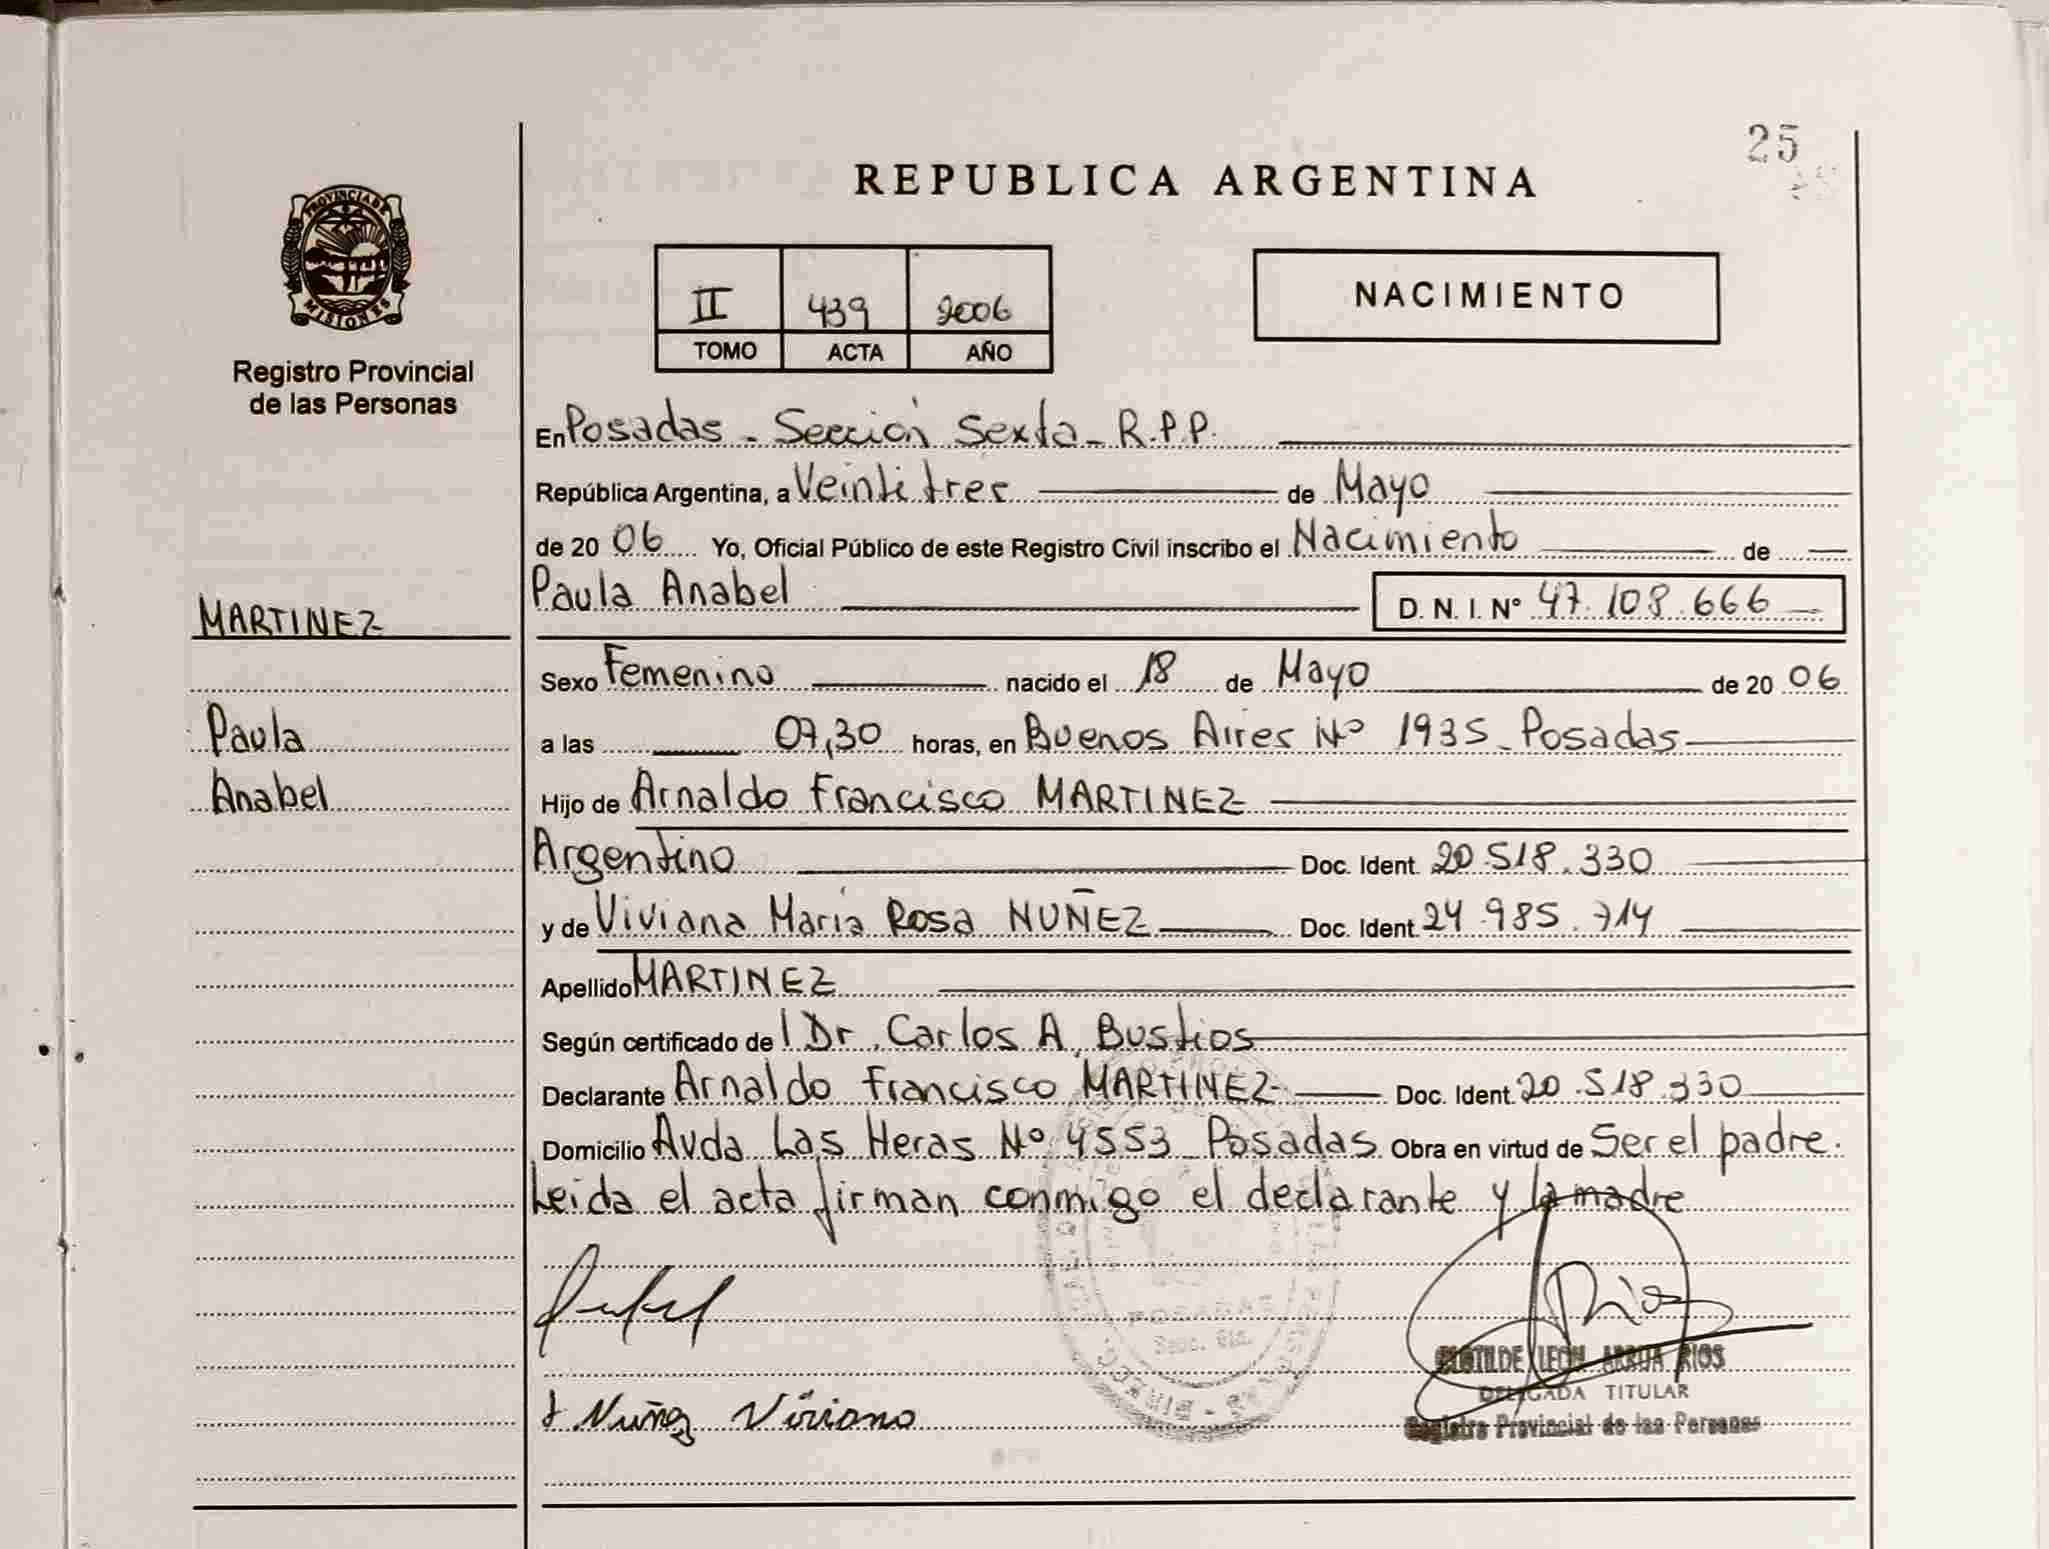 25
REPUBLICA ARGENTINA
PROVINCIA DE
MISIONES
Registro Provincial
de las Personas
II 439 2006
TOMO ACTA AÑO
NACIMIENTO
En Posadas - Sección Sexta - R.P.P.
República Argentina, a Veintitres de Mayo
de 20 06 Yo, Oficial Público de este Registro Civil inscribo el Nacimiento de
Paula Anabel D. N. I. Nº 47.108.666
MARTINEZ
Paula
Anabel
Sexo Femenino nacido el 18 de Mayo de 20 06
a las 07,30 horas, en Buenos Aires Nº 1935 - Posadas
Hijo de Arnaldo Francisco MARTINEZ
Argentino Doc. Ident. 20.518.330
y de Viviana María Rosa NUÑEZ Doc. Ident. 24.985.714
Apellido MARTINEZ
Según certificado de l Dr. Carlos A. Bustios
Declarante Arnaldo Francisco MARTINEZ Doc. Ident. 20.518.330
Domicilio Avda Las Heras Nº 4553 - Posadas Obra en virtud de Ser el padre.
Leida el acta firman conmigo el declarante y la madre
POSADAS
Secc. 6ta.
Rios
CLOTILDE LEON ARRUA RIOS
DELEGADA TITULAR
Registro Provincial de las Personas
Nuñez Viviana